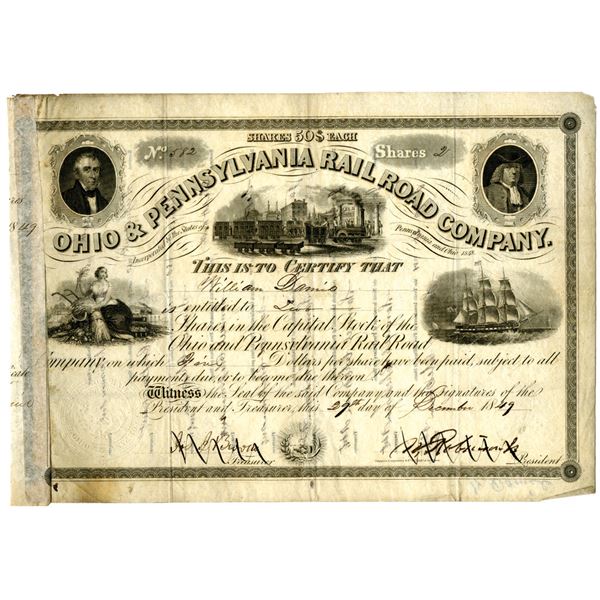 SHARES 50$ EACH
No. 582
Shares 2
OHIO & PENNSYLVANIA RAIL ROAD COMPANY.
Incorporated by the States of Pennsylvania and Ohio 1848.
THIS IS TO CERTIFY THAT
William
is entitled to Two
Shares in the Capital Stock of the
Ohio and Pennsylvania Rail Road
Company, on which Dollars per share have been paid, subject to all
payments due, or to become due thereon.
Witness the Seal of the said Company and the Signatures of the
President and Treasurer, this 29th day of December 1849
Treasurer
President
1849